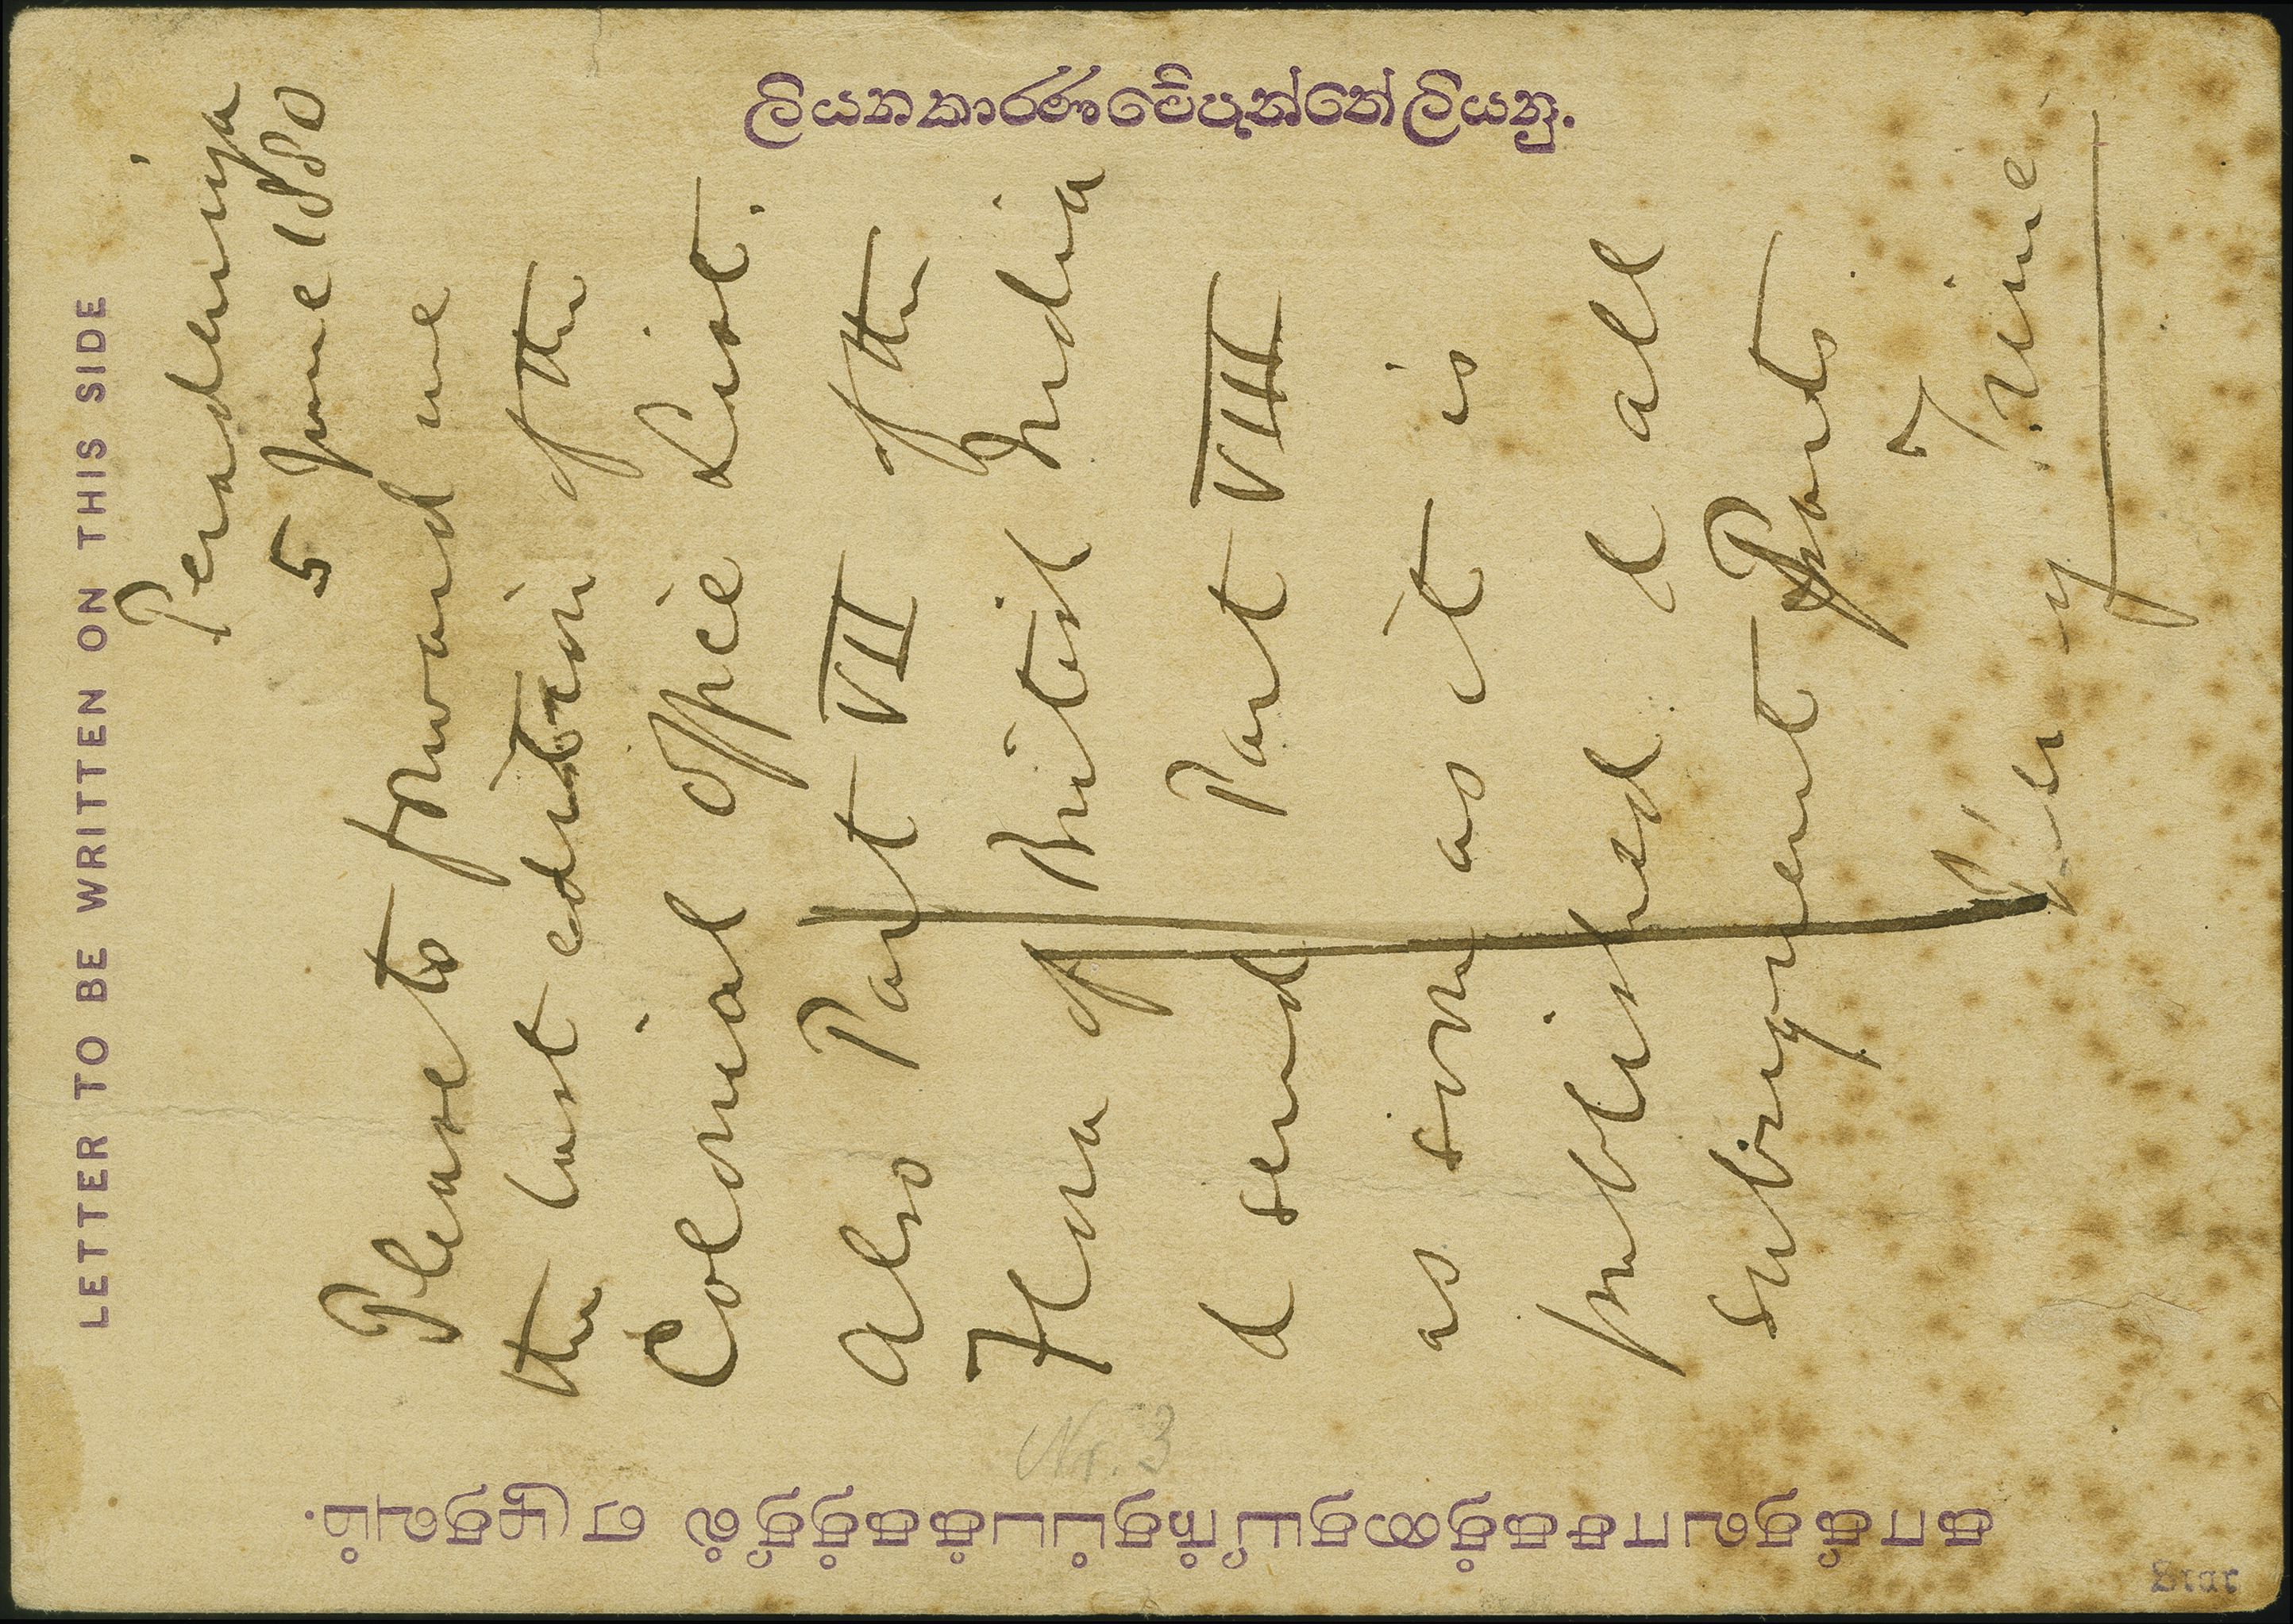 LETTER TO BE WRITTEN ON THIS SIDE
Peradeniya
5 June 1880
Please to forward me
the last edition of the
Colonial Office List.
Also Part VII of the
Flora of British India
& send Part VIII
as soon as it is
published & all
subsequent Parts
ලියනකාරණාමේපැත්තේලියනු.
Nr. 3